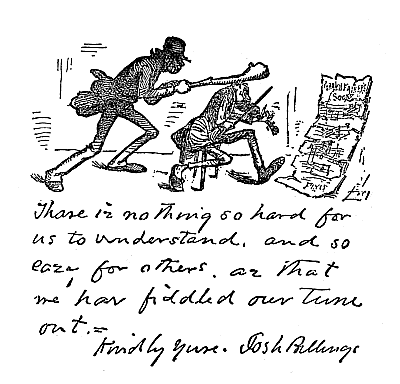 Thare iz nothing so hard for
us to understand, and so
eazy for others, az that
we hav fiddled our tune
out.=
Kindly Yure. Josh Billings